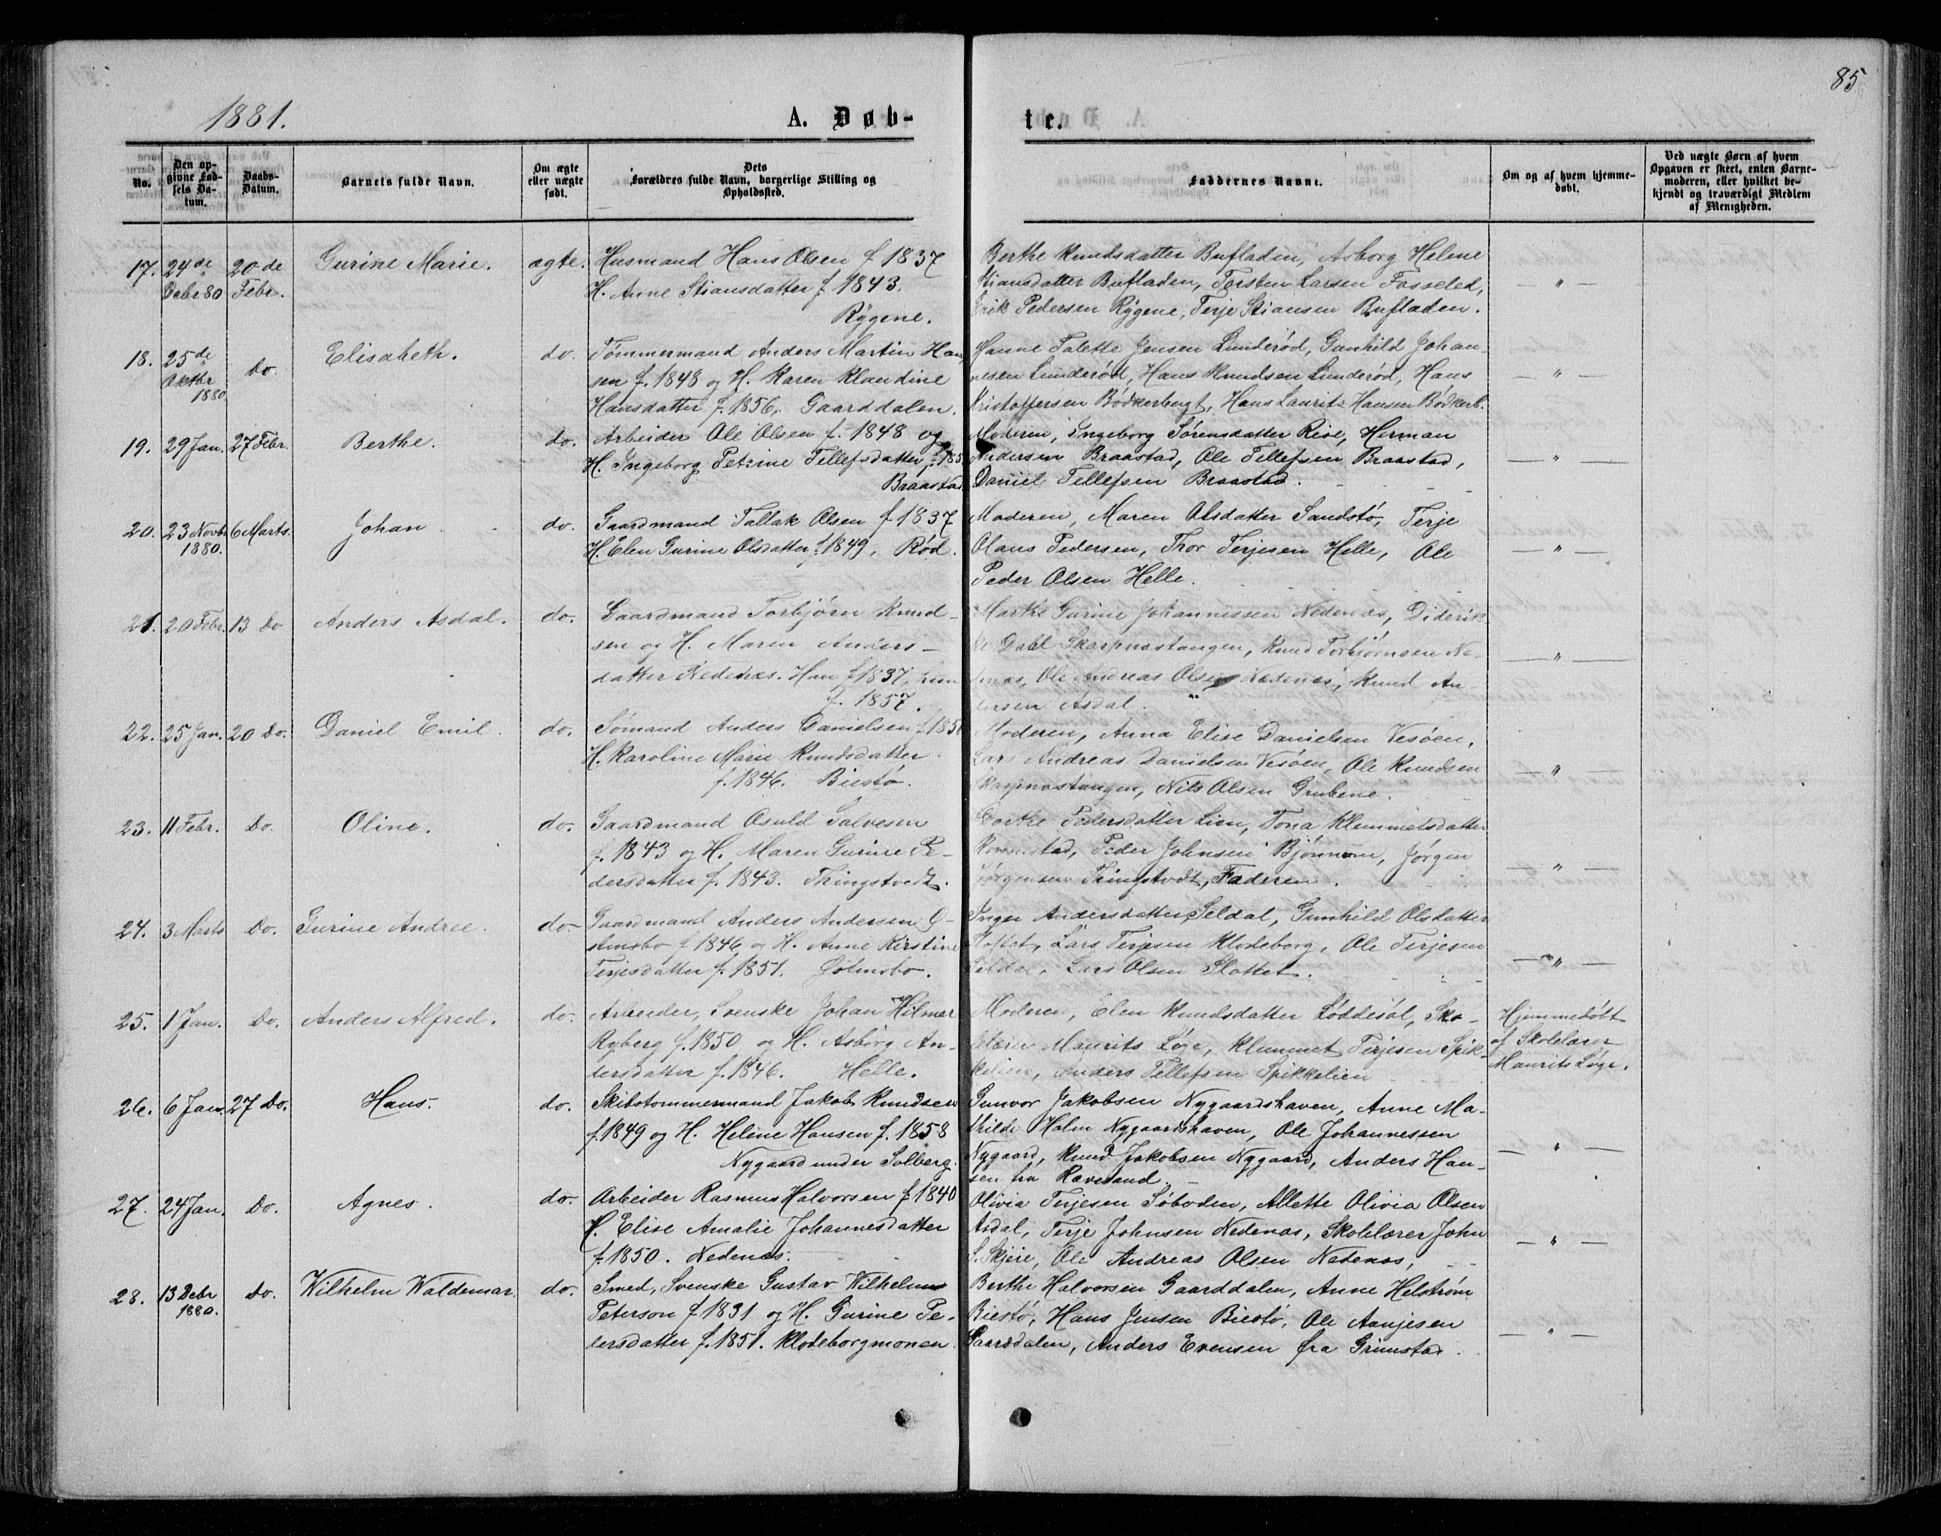 1881. A. Døb- te. 85
No. Den opgivne Fødsels Datum. Daabs-Datum. Barnets fulde Navn. Om ægte eller uægte født. Dets Forældres fulde Navn, borgerlige Stilling og Opholdssted. Faddernes Navne. Om og af hvem hjemmedøbt. Ved uægte Børn af hvem Opgaven er skeet, enten Barnemoderen, eller hvilket bekjendt og troværdigt Medlem af Menigheden.
17. 24de Debr 80 20de Febr. Gurine Marie. ægte. Husmand Hans Olsen f. 1837
H. Anne Stiansdatter f. 1843.
Rygene.
Berthe Knudsdatter Bufladen, Asborg Helene
Stiansdatter Bufladen, Torsten Larsen Fosseled,
Erik Pedersen Rygene, Terje Stiansen Bufladen. — " —
18. 25de Oktbr 1880 Do. Elisabeth. do. Tømmermand Anders Martin Han-
sen f. 1848 og H. Karen Klaudine
Hansdatter f. 1856. Gaarddalen.
Hanne Talette Jensen Lunderød, Gunhild Johan-
nesen Lunderød, Hans Knudsen Lunderød, Hans
Kristoffersen Bødkerbugt, Hans Laurits Hansen Bødkerb. — " —
19. 29 Jan. 27 Febr. Berthe. do. Arbeider Ole Olsen f. 1848 og
H. Ingeborg Petrine Tellefsdatter f. 185
Braastad
Moderen, Ingeborg Sørensdatter Rise, Herman
Andersen Braastad, Ole Tellefsen Braastad,
Daniel Tellefsen Braastad. — " —
20. 23 Novbr 1880. 6 Marts. Johan. do. Gaardmand Tallak Olsen f. 1837
H. Elen Gurine Olsdatter f. 1849, Rød.
Moderen, Maren Olsdatter Sandstø, Terje
Olaus Pedersen, Thor Terjesen Helle, Ole
Peder Olsen Helle. — " —
21. 20 Febr. 13 Do Anders Asdal. do. Gaardmand Torbjørn Knud-
sen og H. Maren Anders-
datter Nedenæs. Han f. 1837, hun
f. 1857.
Marthe Gurine Johannessen Nedenæs, Diderik-
ke Dahl Skarpnæstangen, Knud Torbjørnsen Ne-
denæs, Ole Andreas Olsen Nedenæs, Knud An-
dersen Asdal. — " —
22. 25 Jan. 20 Do. Daniel Emil. do. Sømand Anders Danielsen f. 185
H. Karoline Marie Knudsdatter
f. 1846. Biestø.
Moderen, Anna Elise Danielsen Vesøen,
Lars Andreas Danielsen Vesøen, Ole Knudsen
Skarpnæstangen, Nils Olsen Grubene. — " —
23. 11 Febr. Do. Oline. do. Gaardmand Osuld Salvesen
f. 1843 og H. Maren Gurine Pe-
dersdatter f. 1843. Thingstvedt.
Dorthe Pedersdatter Lien, Tona Klemmetsdatter
Peder Johnsen Bjønnum, Jørgen
Jørgensen Tingstvedt, Faderen. — " —
24. 3 Marts Do. Gurine Andree. do- Gaardmand Anders Andersen
f. 1846 og H. Anne Kirstine
Terjesdatter f. 1851.
Inger Andersdatter Seldal, Gunhild Olsdatter
Slottet, Lars Terjesen Klodeborg, Ole Terjesen
Seldal, Lars Olsen Slottet. — " —
25. 1 Jan. Do. Anders Alfred. do. Arbeider, Svenske Johan Hilmar
Ryberg f. 1850 og H. Asborg An-
dersdatter f. 1846. Helle.
Moderen, Elen Knudsdatter Løddesøl, Sko-
lelærer Maurits Løge, Klemmet Terjesen Spik-
kelien, Anders Tellefsen Spikkelien
Hjemmedøbt
af Skolelærer
Maurits Løge.
26. 6 Jan. 27 Do. Hans. do. Skibstømmermand Jakob Knudsen
f. 1849 og H. Helene Hansen f. 1858
Nygaard under Solberg.
Gunvor Jakobsen Nygaardshaven, Anne Ma-
thilde Holm Nygaardshaven, Ole Johannessen
Nygaard, Knud Jakobsen Nygaard, Anders Han-
sen fra Ravesand. — " —
27. 24 Jan. Do. Agnes. do- Arbeider Rasmus Halvorsen f. 1840
H. Elise Amalie Johannesdatter
f. 1850. Nedenæs.
Olivia Terjesen Søboden, Allette Olivia Olsen
Asdal, Terje Johnsen Nedenæs, Skolelærer John
S. Skjeie, Ole Andreas Olsen Nedenæs, — " —
28. 13 Debr 1880. Do. Wilhelm Waldemar. do. Smed, Svenske Gustav Wilhelm
Peterson f. 1831 og H. Gurine Pe-
dersdatter f. 1851. Klodeborgmonen.
Berthe Halvorsen Gaarddalen, Anne Helstrøm
Biestø, Hans Jensen Biestø, Ole Aanjesen
Gaarddalen, Anders Evensen fra Grimstad. — " —